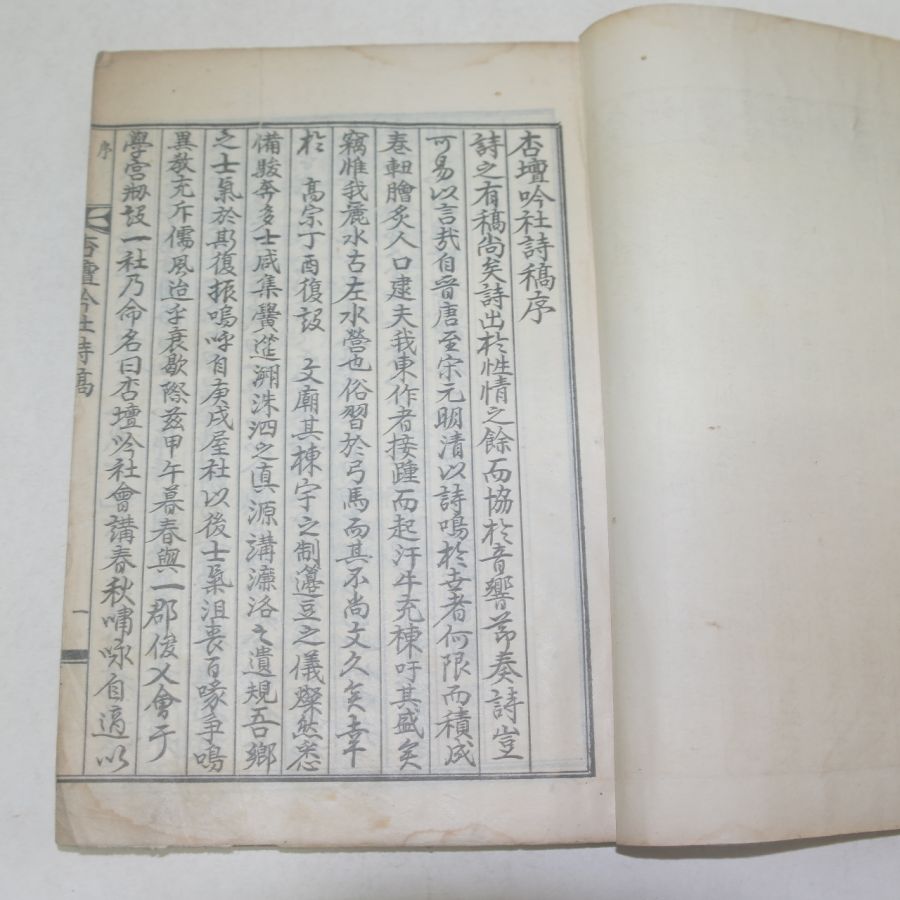 杏壇吟社詩稿序
詩之有稿尚矣詩出於性情之餘而協於音響節奏詩豈
可易以言哉自晋唐至宋元明清以詩鳴於世者何限而積成
卷軸膾炙人口逮夫我東作者接踵而起汗牛充棟吁其盛矣
竊惟我麗水古左水營也俗習於弓馬而其不尚文久矣幸
於 高宗丁酉復設 文廟其棟宇之制籩豆之儀燦然悉
備駿奔多士咸集黌 溯洙泗之真源講濂洛之遺規吾鄉
之士氣於斯復振嗚呼自庚戌屋社以後士氣沮喪百喙争鳴
異教充斥儒風迨乎衰歇際玆甲午暮春與一郡俊乂會于
學宮刱設一社乃命名曰杏壇吟社會講春秋嘯咏自適以
序
杏壇吟社詩稿
一